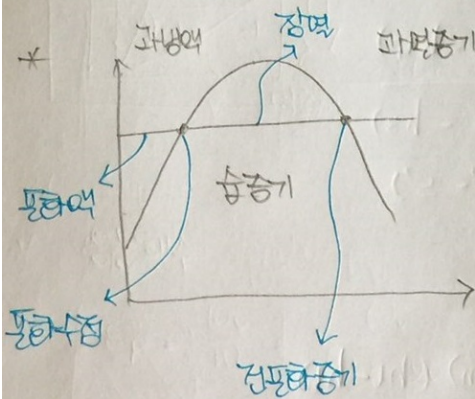 * 과냉액 잠열 과열증기
포화액 습증기
포화수점
건포화증기